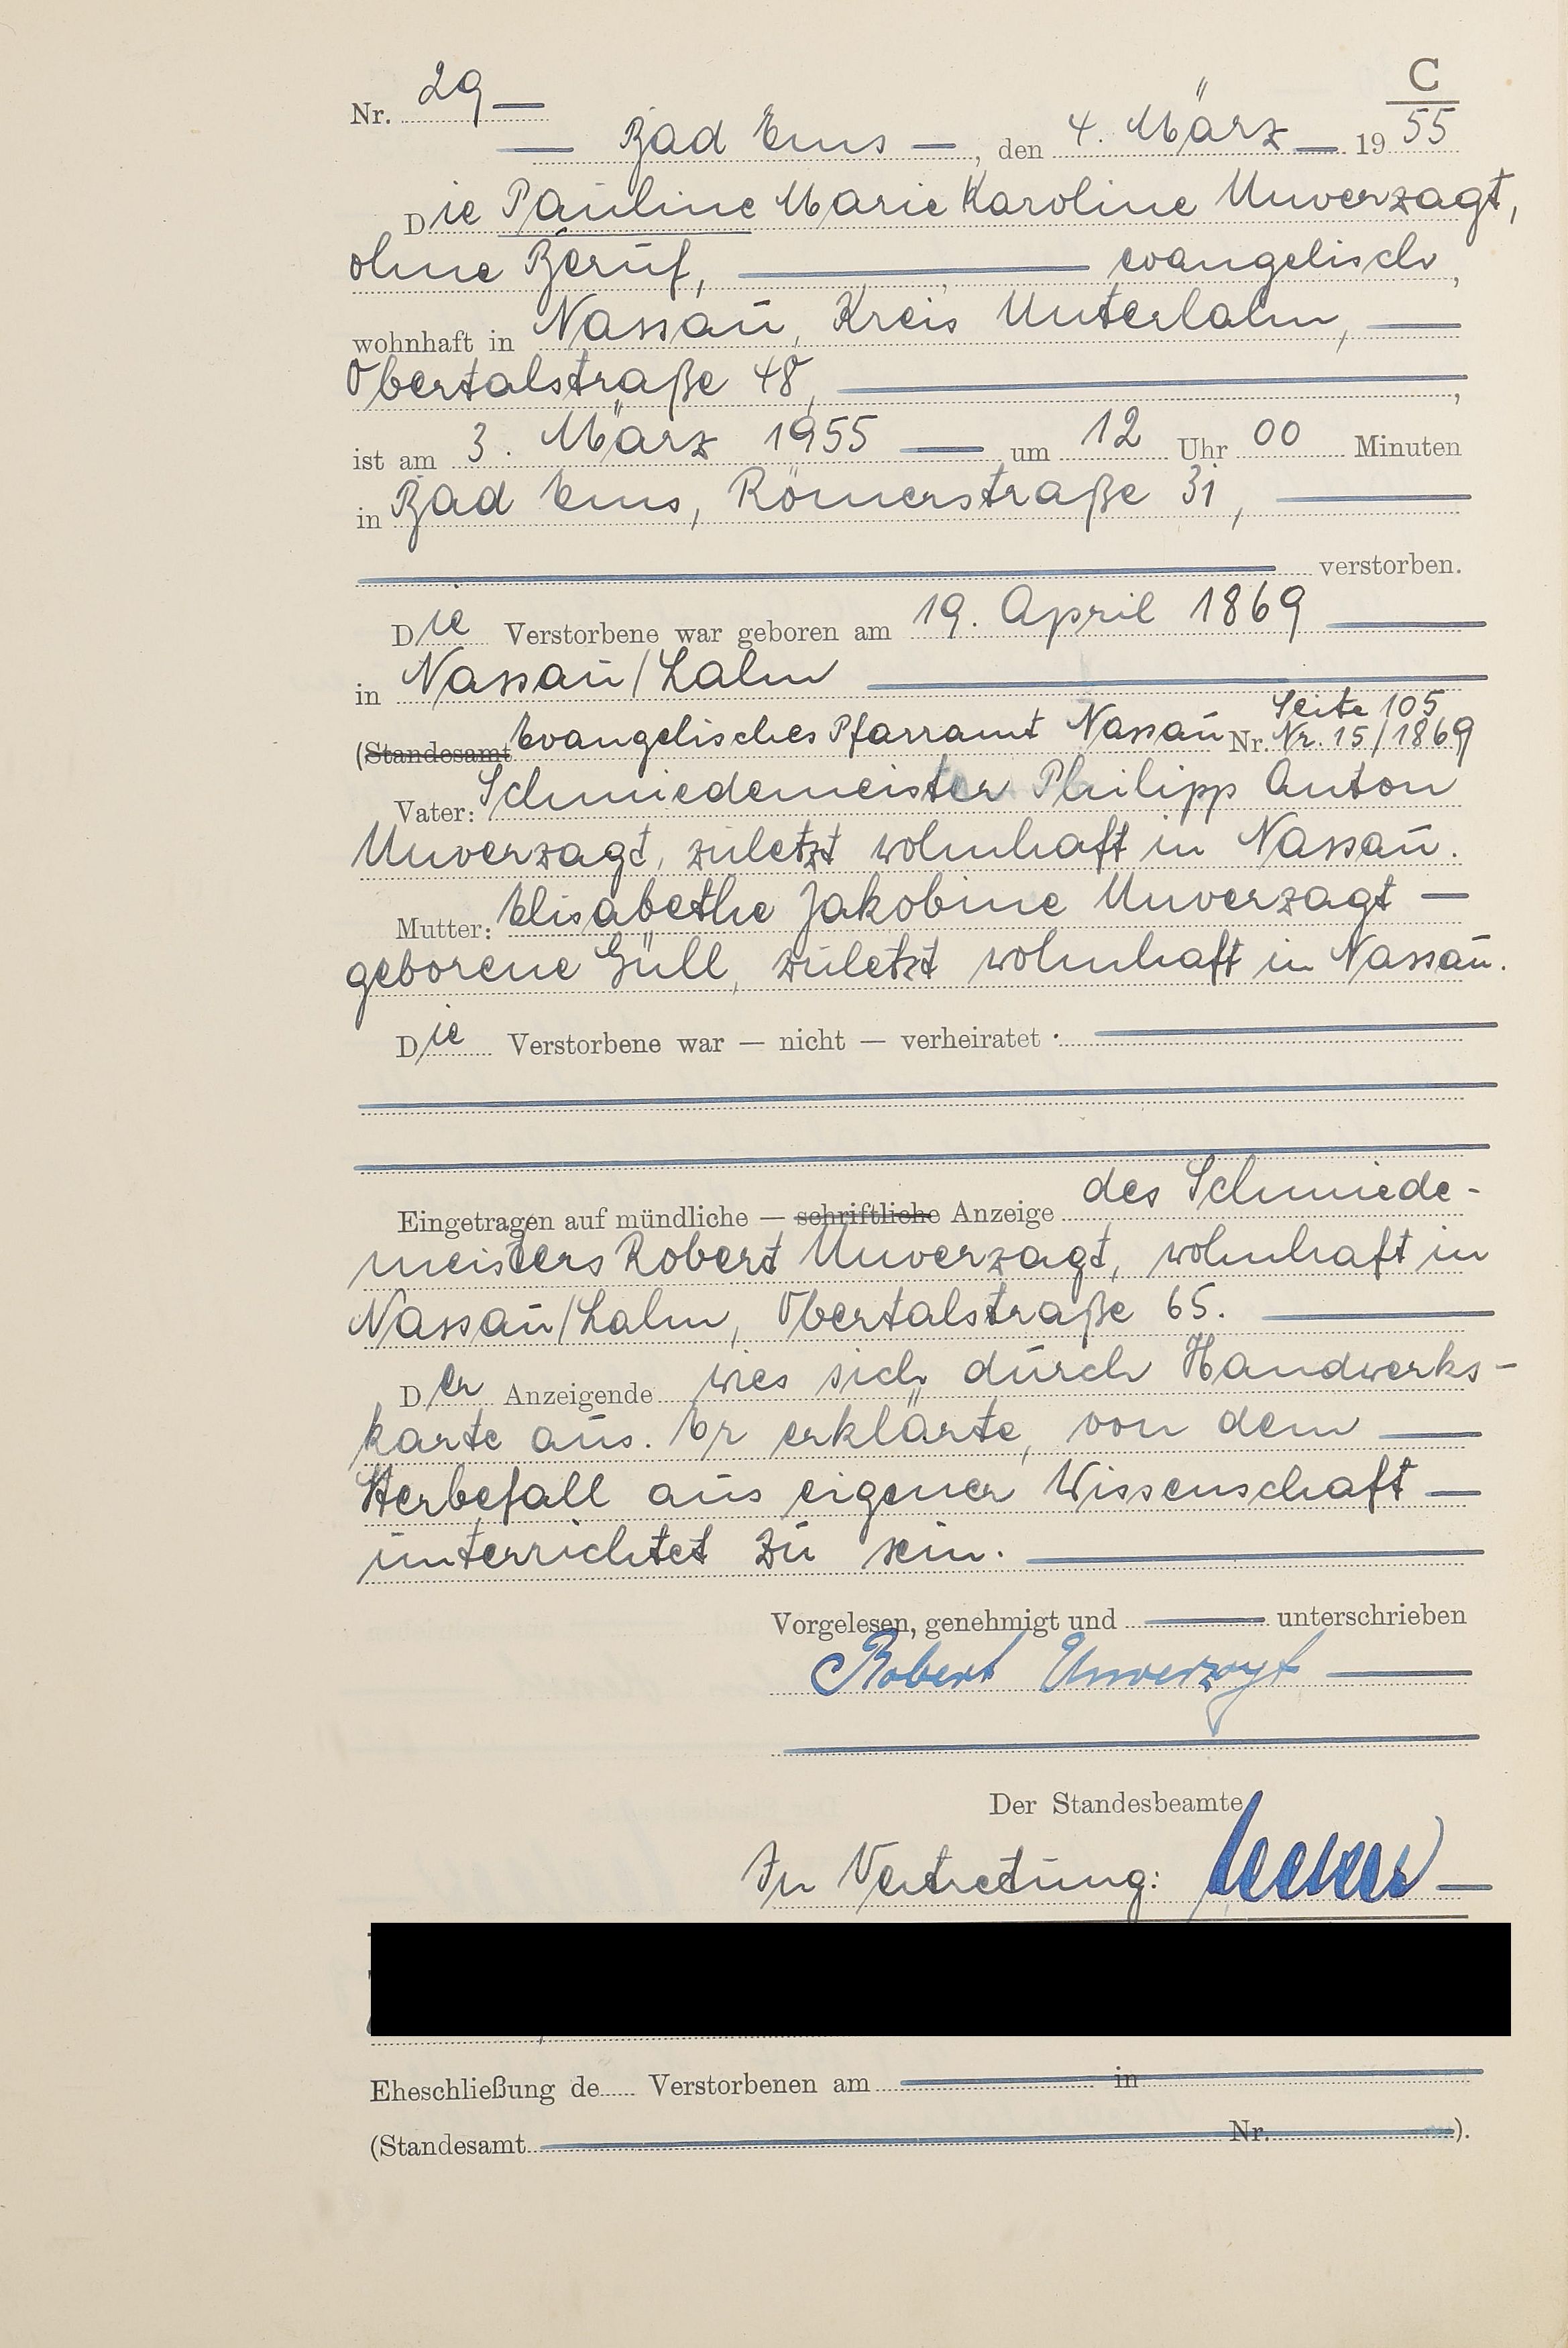 C
Nr. 29
Bad Ems, den 4. März 1955
Die Pauline Marie Karoline Unverzagt,
ohne Beruf, evangelisch,
wohnhaft in Nassau, Kreis Unterlahn,
Obertalstraße 48,
ist am 3. März 1955 um 12 Uhr 00 Minuten
in Bad Ems, Römerstraße 31,
verstorben.
Die Verstorbene war geboren am 19. April 1869
in Nassau/Lahn
Seite 105
(Standesamt Evangelisches Pfarramt Nassau Nr. Nr. 15/1869
Vater: Schmiedemeister Philipp Anton
Unverzagt, zuletzt wohnhaft in Nassau.
Mutter: Elisabethe Jakobine Unverzagt –
geborene Güll, zuletzt wohnhaft in Nassau.
Die Verstorbene war — nicht — verheiratet.
Eingetragen auf mündliche — schriftliche Anzeige des Schmiede-
meisters Robert Unverzagt, wohnhaft in
Nassau/Lahn, Obertalstraße 65.
Der Anzeigende wies sich durch Handwerks-
karte aus. Er erklärte, von dem
Sterbefall aus eigener Wissenschaft
unterrichtet zu sein.
Vorgelesen, genehmigt und unterschrieben
Robert Unverzagt
Der Standesbeamte
In Vertretung:
Eheschließung de Verstorbenen am in
(Standesamt Nr. ).